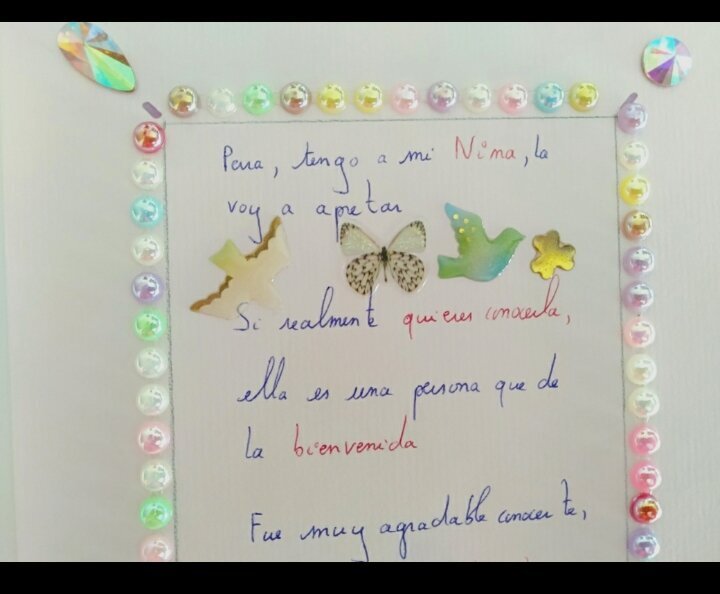 Pena, tengo a mi Nima, la
voy a apretar
Si realmente quieres conocerla,
ella es una persona que de
la bienvenida
Fue muy agradable conocerte,